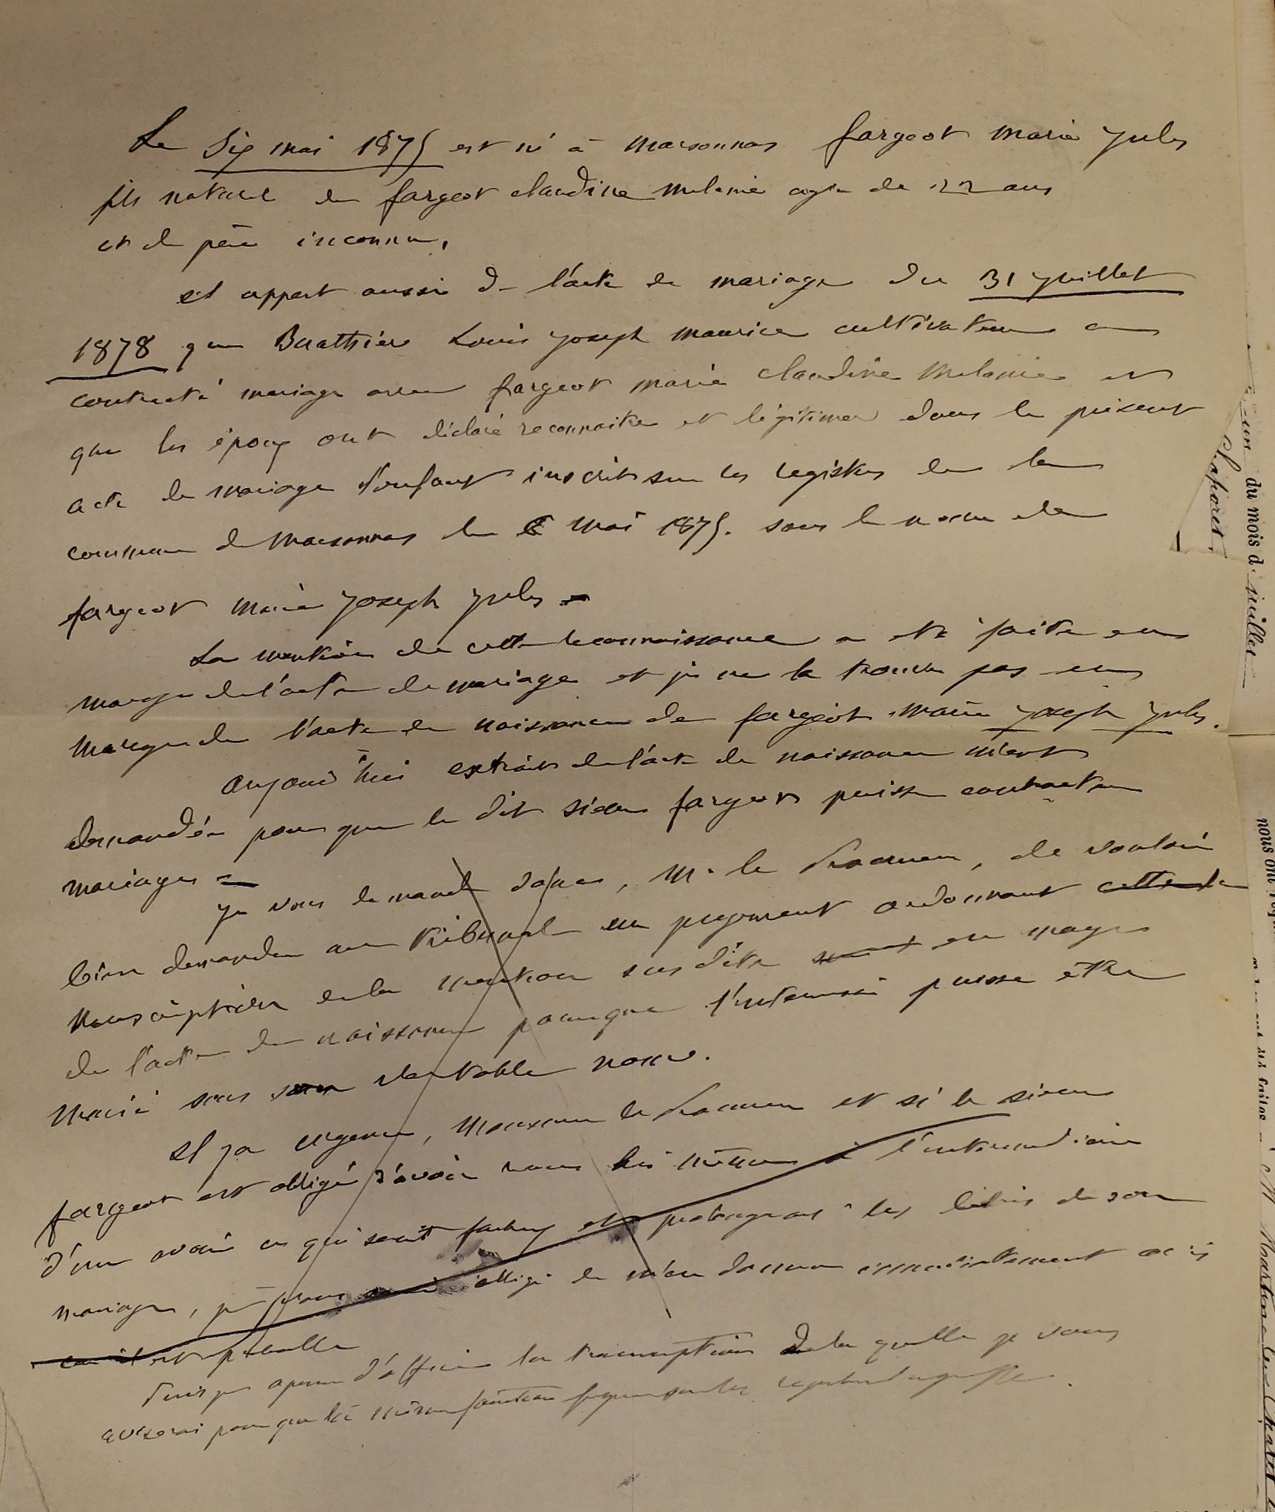 Le Six mai 1875 est né à Marsonnas fargeot marie Jules
fils naturel de fargeot claudine melanie agée de 22 ans
et de père inconnu,
il appert aussi de l'acte de mariage du 31 Juillet
1878 que Buathier Louis Joseph Maurice cultivateur a
contracté mariage avec fargeot marie claudine melanie et
que les époux ont déclaré reconnaitre et légitimer dans le présent
acte de mariage l'enfant inscrit sur les registres de la
commune de Marsonnas le 6 Mai 1875. sous le nom de
fargeot Marie Joseph Jules
La mention de cette reconnaissance a été faite en
marge de l'acte de mariage et je ne la trouve pas en
marge de l'acte de naissance de fargeot marie Joseph Jules.
aujourd'hui extrait de l'acte de naissance m'est
demandée pour que le dit sieur fargeot puisse contracter
mariage
Je vous demande donc, M. le Procureur, de vouloir
bien demander au tribunal un jugement ordonnant cette la
transcription de la mention susdite en marge
de l'acte de naissance pour que l'intéressé puisse être
marié sous son véritable nom.
Il y a urgence, Monsieur le Procureur et si le sieur
fargeot est obligé d'avoir recours lui même à l'intermédiaire
d'un avoué ce qui serait facheux et prolongerait les délais de son
mariage, obligé de m'en donner immediatement avis
car il est probable
Puis je opérer d'office la transcription de laquelle je vous
aviserai pour que la même soit sur les registres du greffe.
un
Chaporet
du mois d juillet
nous ont